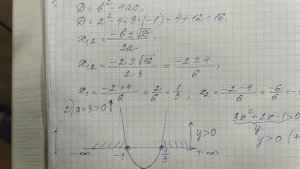 D = b² - 4ac,
D = 2² - 4·3·(-1) = 4+12 = 16.
x₁,₂ = (-b ± √D)/2a
x₁,₂ = (-2 ± √16)/(2·3) = (-2 ± 4)/6,
x₁ = (-2+4)/6 = 2/6 = 1/3; x₂ = (-2-4)/6 = -6/6 =
2) a=3>0 ↑
3x²+2x-1>0
y>0
y
y>0 (
-∞ -1 1/3 +∞